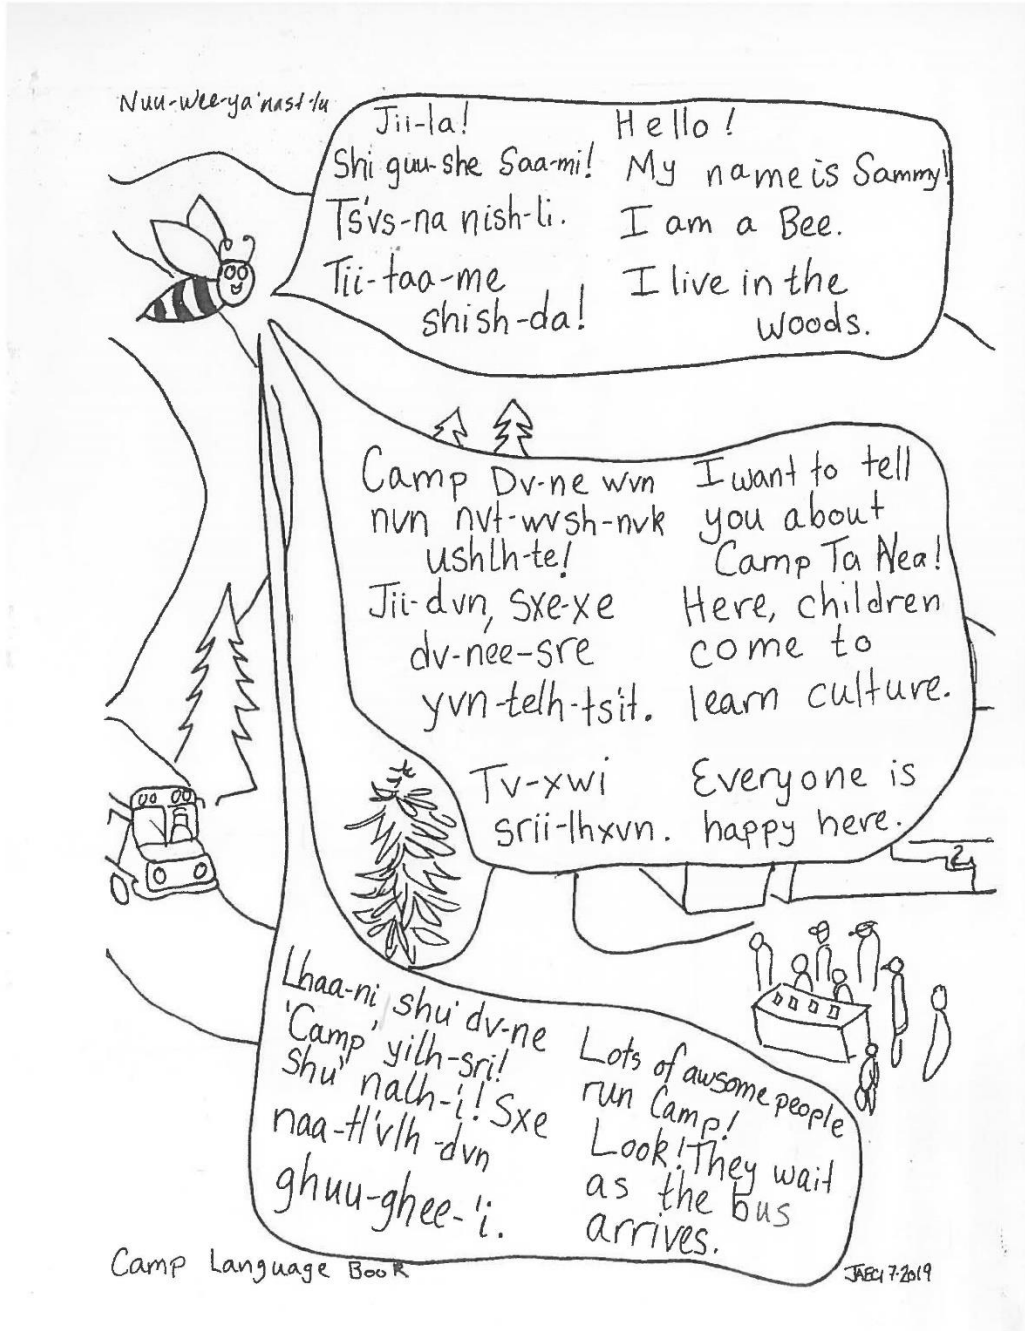 Nuu-wee-ya'nast-lu
Jii-la!
Shi guu-she Saa-mi!
Ts'vs-na nish-li.
Tii-taa-me
shish-da!
Hello!
My name is Sammy!
I am a Bee.
I live in the
woods.
Camp Dv-ne wvn
nvn nvt-wvsh-nvk
ushlh-te!
Jii-dvn, sxe-xe
dv-nee-sre
yvn-telh-ts'it.
Tv-xwi
srii-lhxvn.
I want to tell
you about
Camp Ta Nea!
Here, children
come to
learn culture.
Everyone is
happy here.
2
Lhaa-ni shu' dv-ne
'Camp' yilh-sri!
Shu' nalh-i! Sxe
naa-tl'vlh-dvn
ghuu-ghee-'i.
Lots of awsome people
run Camp!
Look! They wait
as the bus
arrives.
Camp Language Book
7.2019